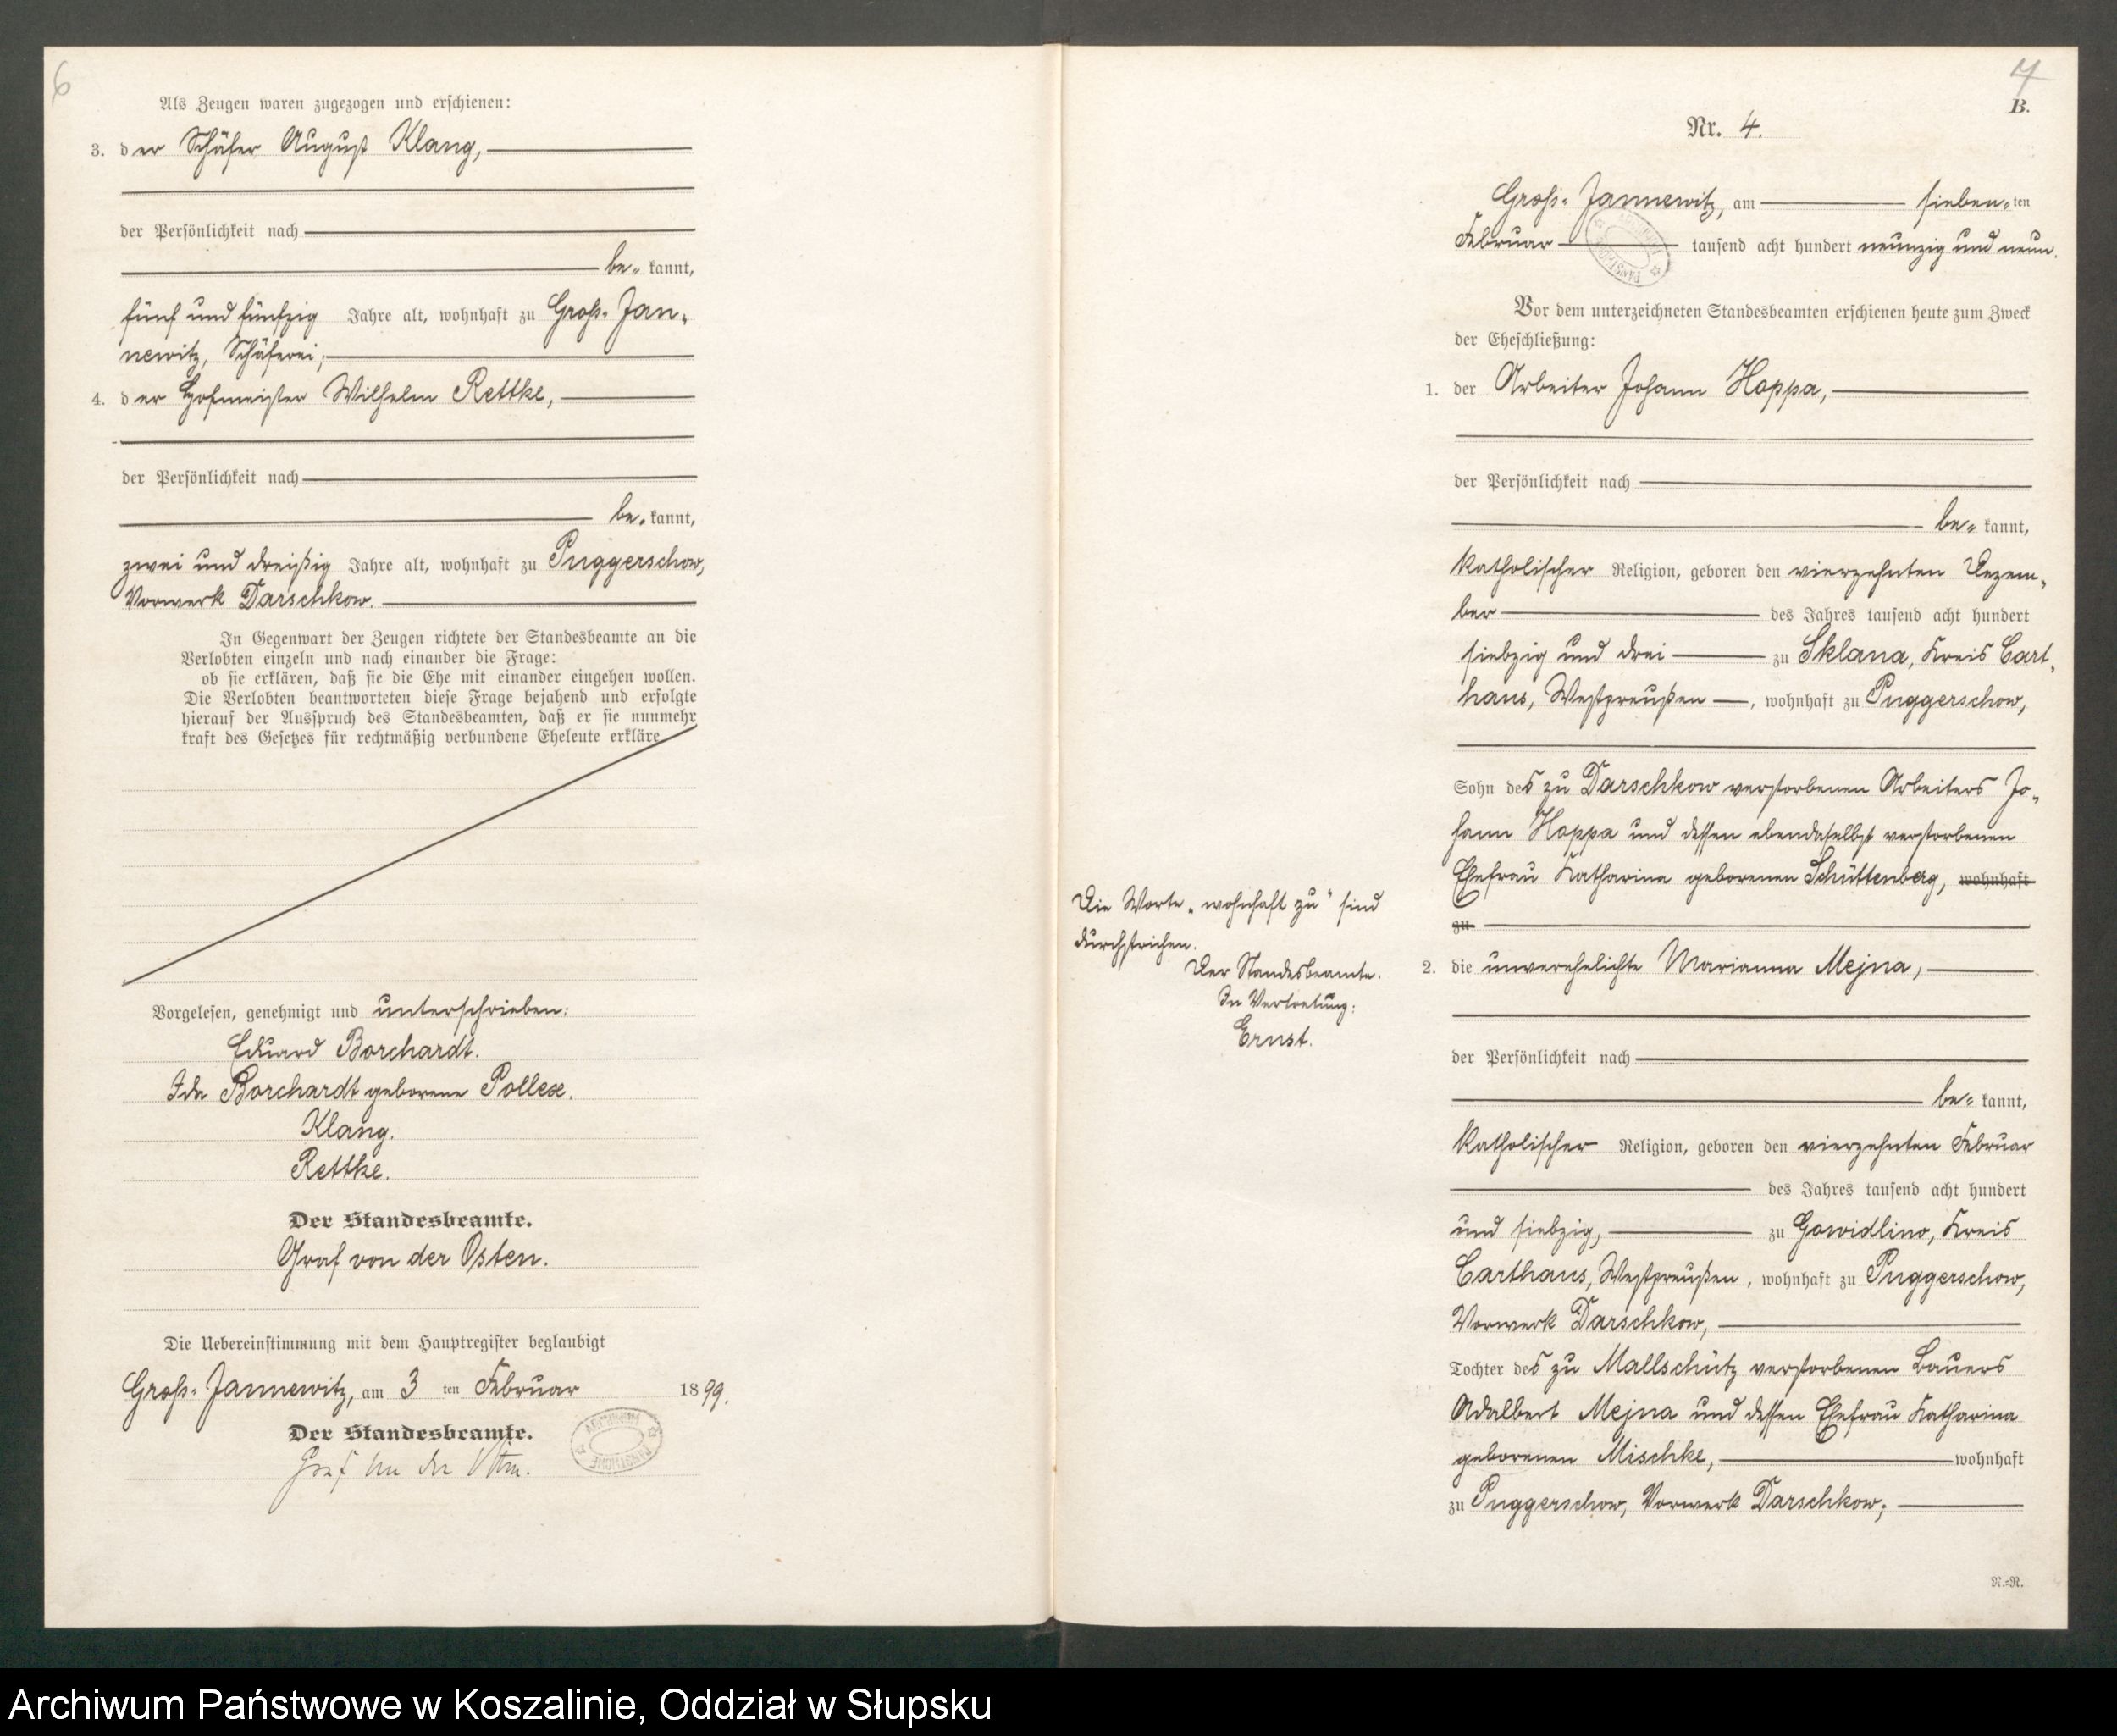 6
Als Zeugen waren zugezogen und erschienen:
3. der Schäfer August Klang,
der Persönlichkeit nach
be= kannt,
fünf und fünfzig Jahre alt, wohnhaft zu Groß= Jan=
newitz, Schäferei;
4. der Hofmeister Wilhelm Rettke,
der Persönlichkeit nach
be= kannt,
zwei und dreißig Jahre alt, wohnhaft zu Puggerschow,
Vorwerk Darschkow.
In Gegenwart der Zeugen richtete der Standesbeamte an die
Verlobten einzeln und nach einander die Frage:
ob sie erklären, daß sie die Ehe mit einander eingehen wollen.
Die Verlobten beantworteten diese Frage bejahend und erfolgte
hierauf der Ausspruch des Standesbeamten, daß er sie nunmehr
kraft des Gesetzes für rechtmäßig verbundene Eheleute erkläre
Vorgelesen, genehmigt und unterschrieben:
Eduard Borchardt.
Ida Borchardt geborene Pollex.
Klang.
Rettke.
Der Standesbeamte.
Graf von der Osten.
Die Uebereinstimmung mit dem Hauptregister beglaubigt
Groß= Jannewitz, am 3 ten Februar 1899.
Der Standesbeamte.
Graf von der Osten.
7
B.
Nr. 4.
Groß= Jannewitz, am sieben= ten
Februar tausend acht hundert neunzig und neun.
Vor dem unterzeichneten Standesbeamten erschienen heute zum Zweck
der Eheschließung:
1. der Arbeiter Johann Hoppa,
der Persönlichkeit nach
be= kannt,
katholischer Religion, geboren den vierzehnten Dezem=
ber des Jahres tausend acht hundert
siebzig und drei zu Sklana, Kreis Cart=
haus, Westpreußen, wohnhaft zu Puggerschow,
Sohn des zu Darschkow verstorbenen Arbeiters Jo=
hann Hoppa und dessen ebendaselbst verstorbenen
Ehefrau Katharina geborenen Schüttenberg, wohnhaft
zu
2. die unverehelichte Marianna Mejna,
der Persönlichkeit nach
be= kannt,
katholischer Religion, geboren den vierzehnten Februar
des Jahres tausend acht hundert
und siebzig, zu Gowidlino, Kreis
Carthaus, Westpreußen, wohnhaft zu Puggerschow,
Vorwerk Darschkow,
Tochter des zu Mallschütz verstorbenen Bauers
Adalbert Mejna und dessen Ehefrau Katharina
geborenen Mischke, wohnhaft
zu Puggerschow, Vorwerk Darschkow;
Die Worte „wohnhaft zu" sind
durchstrichen.
Der Standesbeamte.
In Vertretung:
Ernst.
R.=R.
Archiwum Państwowe w Koszalinie, Oddział w Słupsku